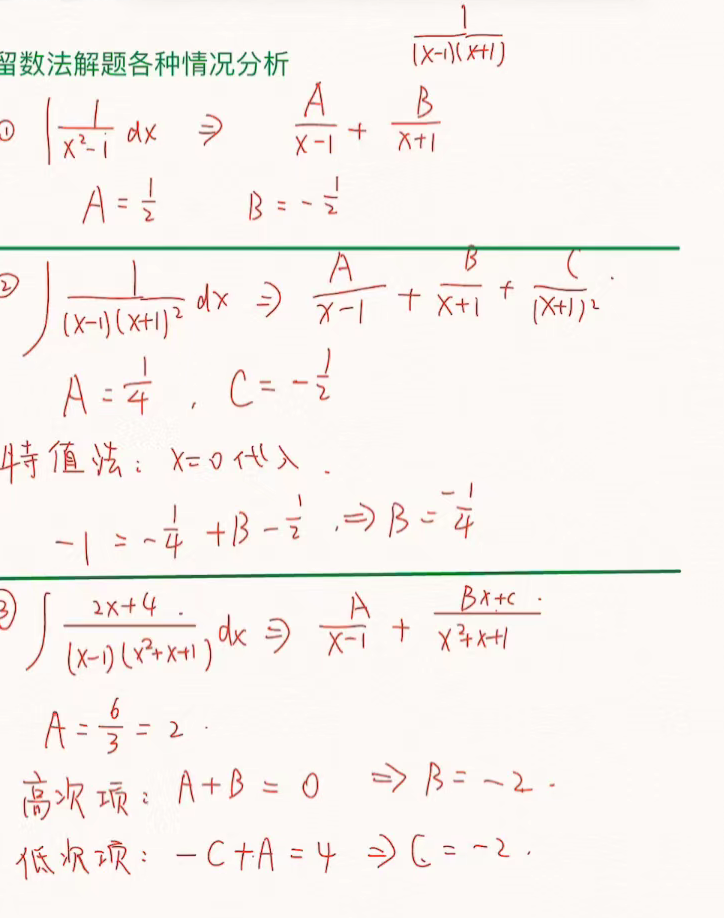 1/((x-1)(x+1))
留数法解题各种情况分析
① ∫ 1/(x²-1) dx ⇒ A/(x-1) + B/(x+1)
A = 1/2 B = -1/2
② ∫ 1/((x-1)(x+1)²) dx ⇒ A/(x-1) + B/(x+1) + C/(x+1)²
A = 1/4 , C = -1/2
特值法: x=0 代入.
-1 = -1/4 + B - 1/2 . ⇒ B = -1/4
③ ∫ (2x+4)/((x-1)(x²+x+1)) dx ⇒ A/(x-1) + (Bx+c)/(x²+x+1)
A = 6/3 = 2 .
高次项: A+B = 0 ⇒ B = -2 .
低次项: -C+A = 4 ⇒ C = -2 .